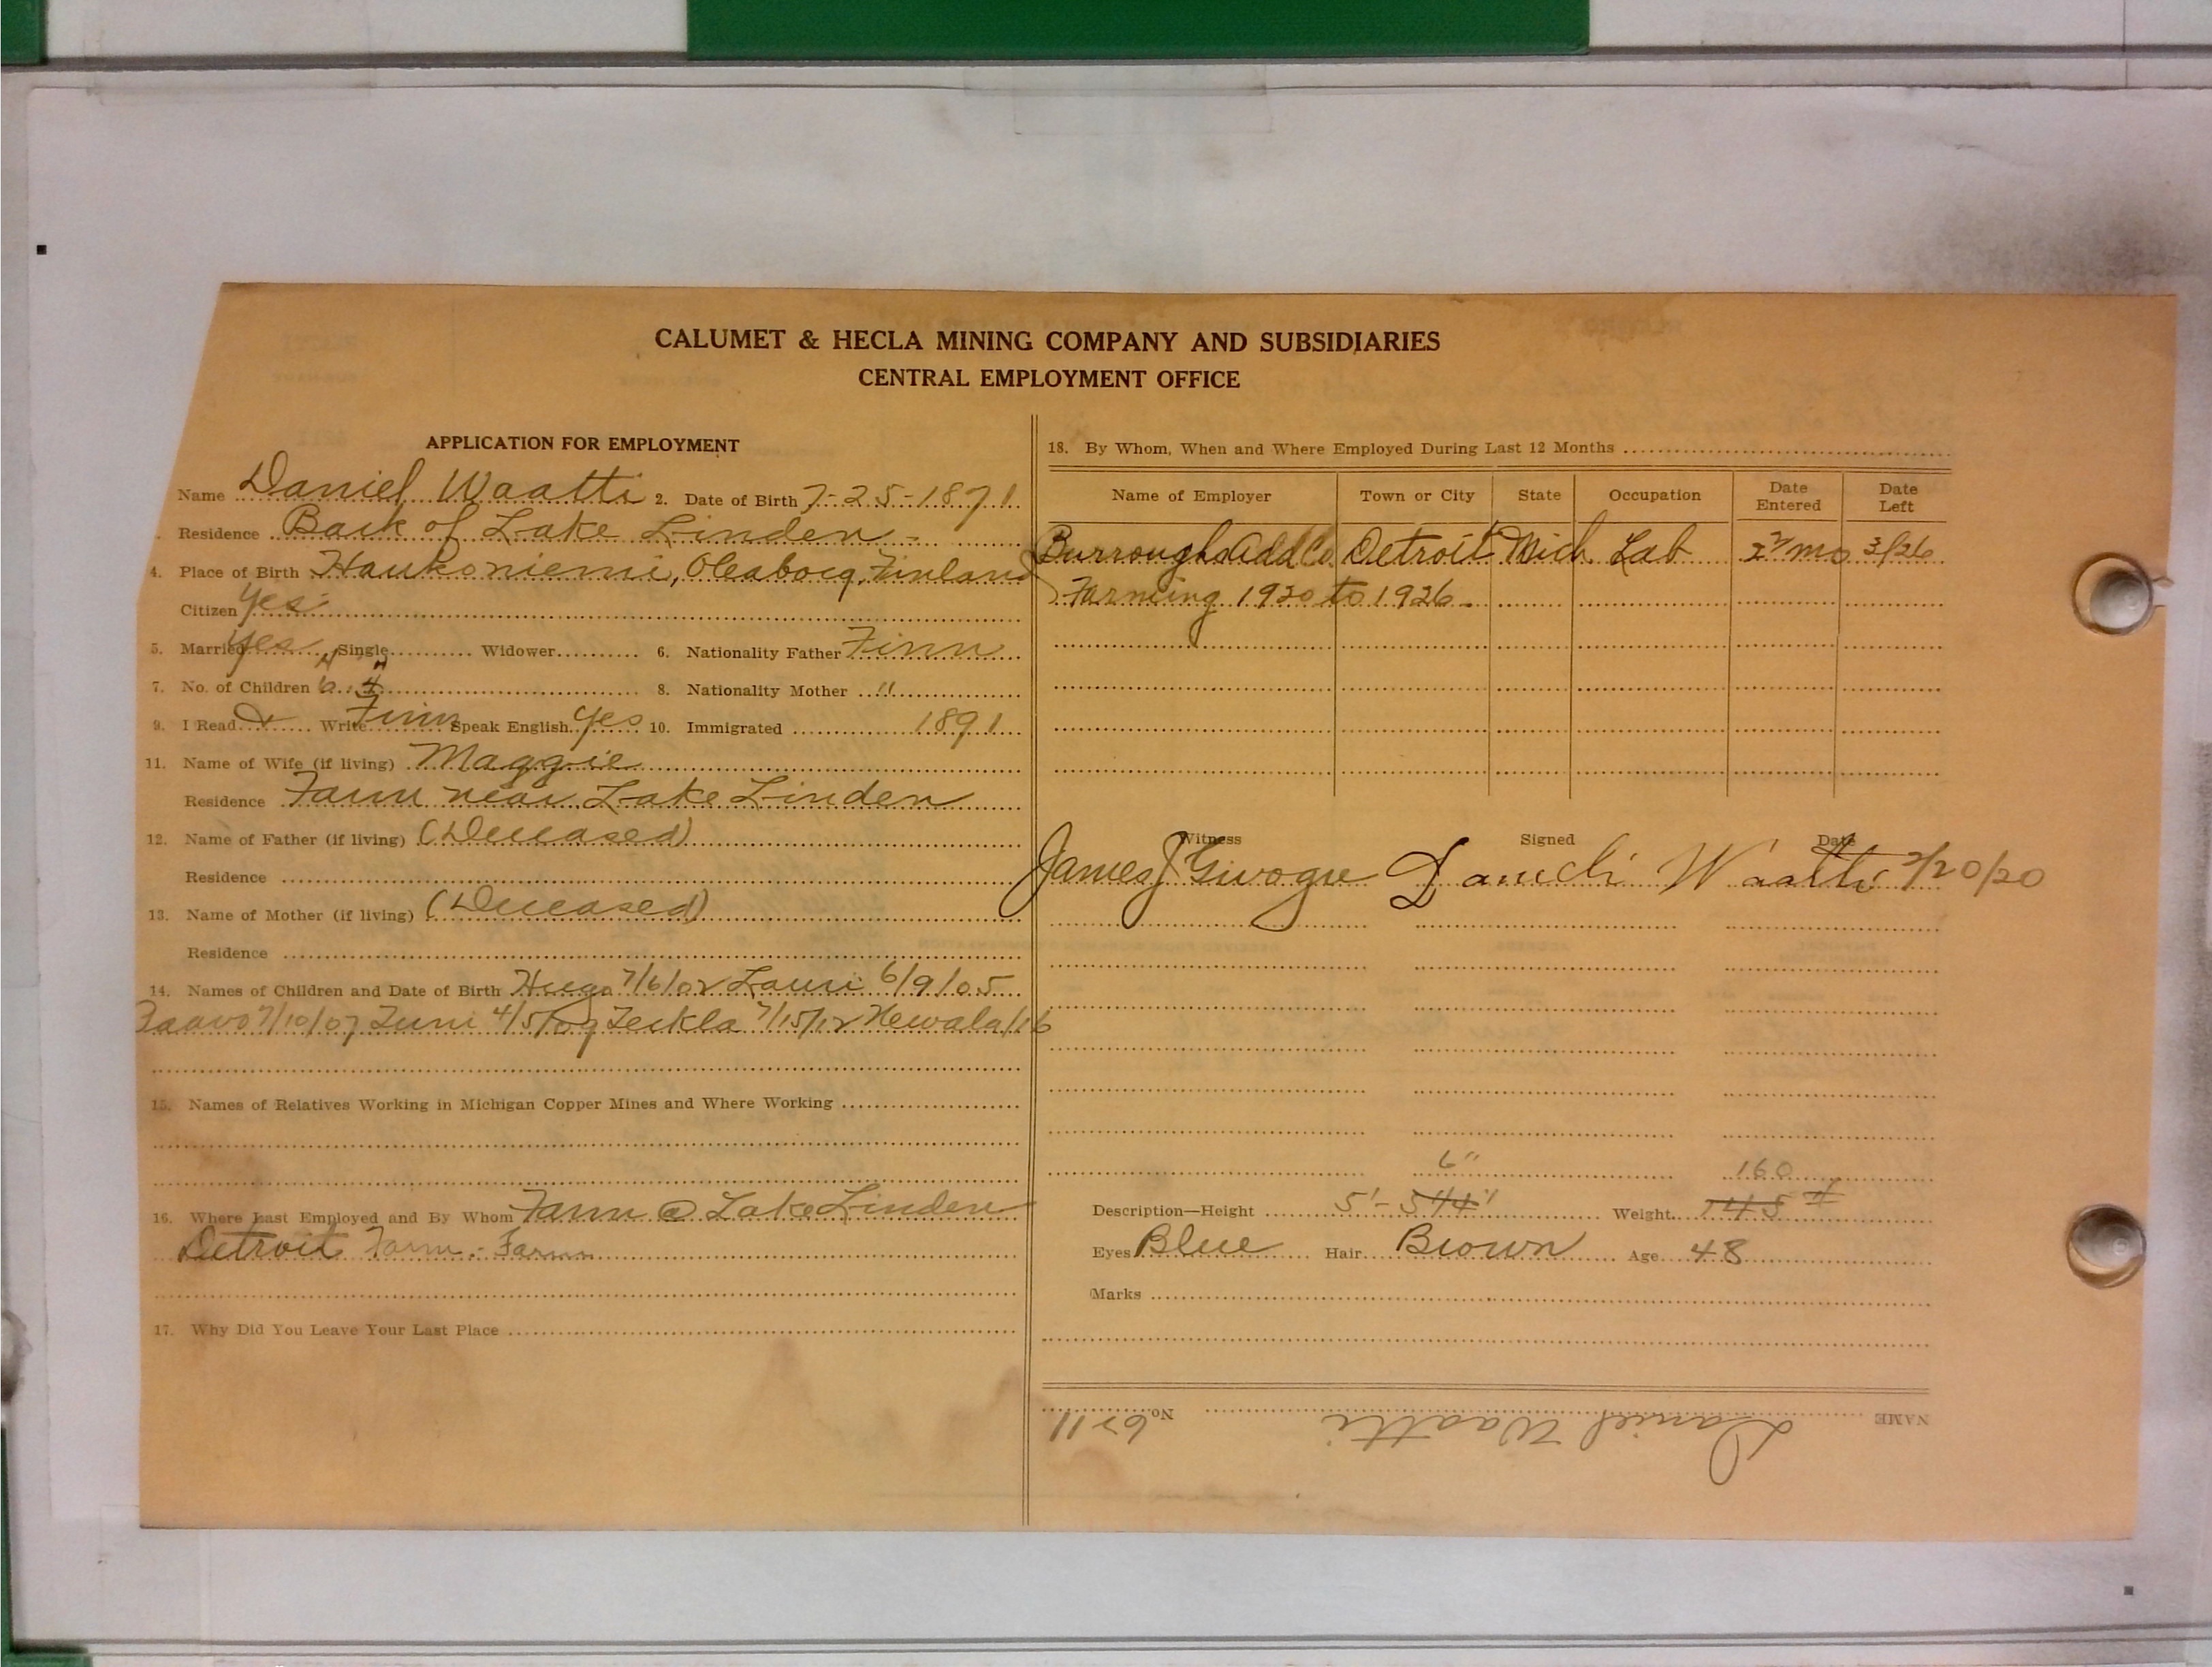 CALUMET & HECLA MINING COMPANY AND SUBSIDIARIES
CENTRAL EMPLOYMENT OFFICE
APPLICATION FOR EMPLOYMENT
Name Daniel Waatti 2. Date of Birth 7-25-1871
Residence Back of Lake Linden
4. Place of Birth Haukoniemi, Oleaborg, Finland
Citizen Yes
5. Married yes Single Widower 6. Nationality Father Finn
7. No. of Children 6 8. Nationality Mother "
9. I Read & Write Finn Speak English Yes 10. Immigrated 1891
11. Name of Wife (if living) Maggie
Residence Farm near Lake Linden
12. Name of Father (if living) (Deceased)
Residence
13. Name of Mother (if living) (Deceased)
Residence
14. Names of Children and Date of Birth Hugo 7/6/02 Lauri 6/9/05
7/10/07 4/5/09 Teckla 7/15/12
15. Names of Relatives Working in Michigan Copper Mines and Where Working
16. Where Last Employed and By Whom Farm @ Lake Linden
Detroit Farm. Farm
17. Why Did You Leave Your Last Place
18. By Whom, When and Where Employed During Last 12 Months
Name of Employer Town or City State Occupation Date Entered Date Left
Burroughs Add Co. Detroit Mich. Lab mo 3/26
Farming 1920 to 1926
Witness Signed Date
James J Daniel Waatti 20/20
6" 160
Description—Height 5'-5 1/4" Weight 145 #
Eyes Blue Hair Brown Age 48
Marks
NAME Daniel Waatti No. 6211